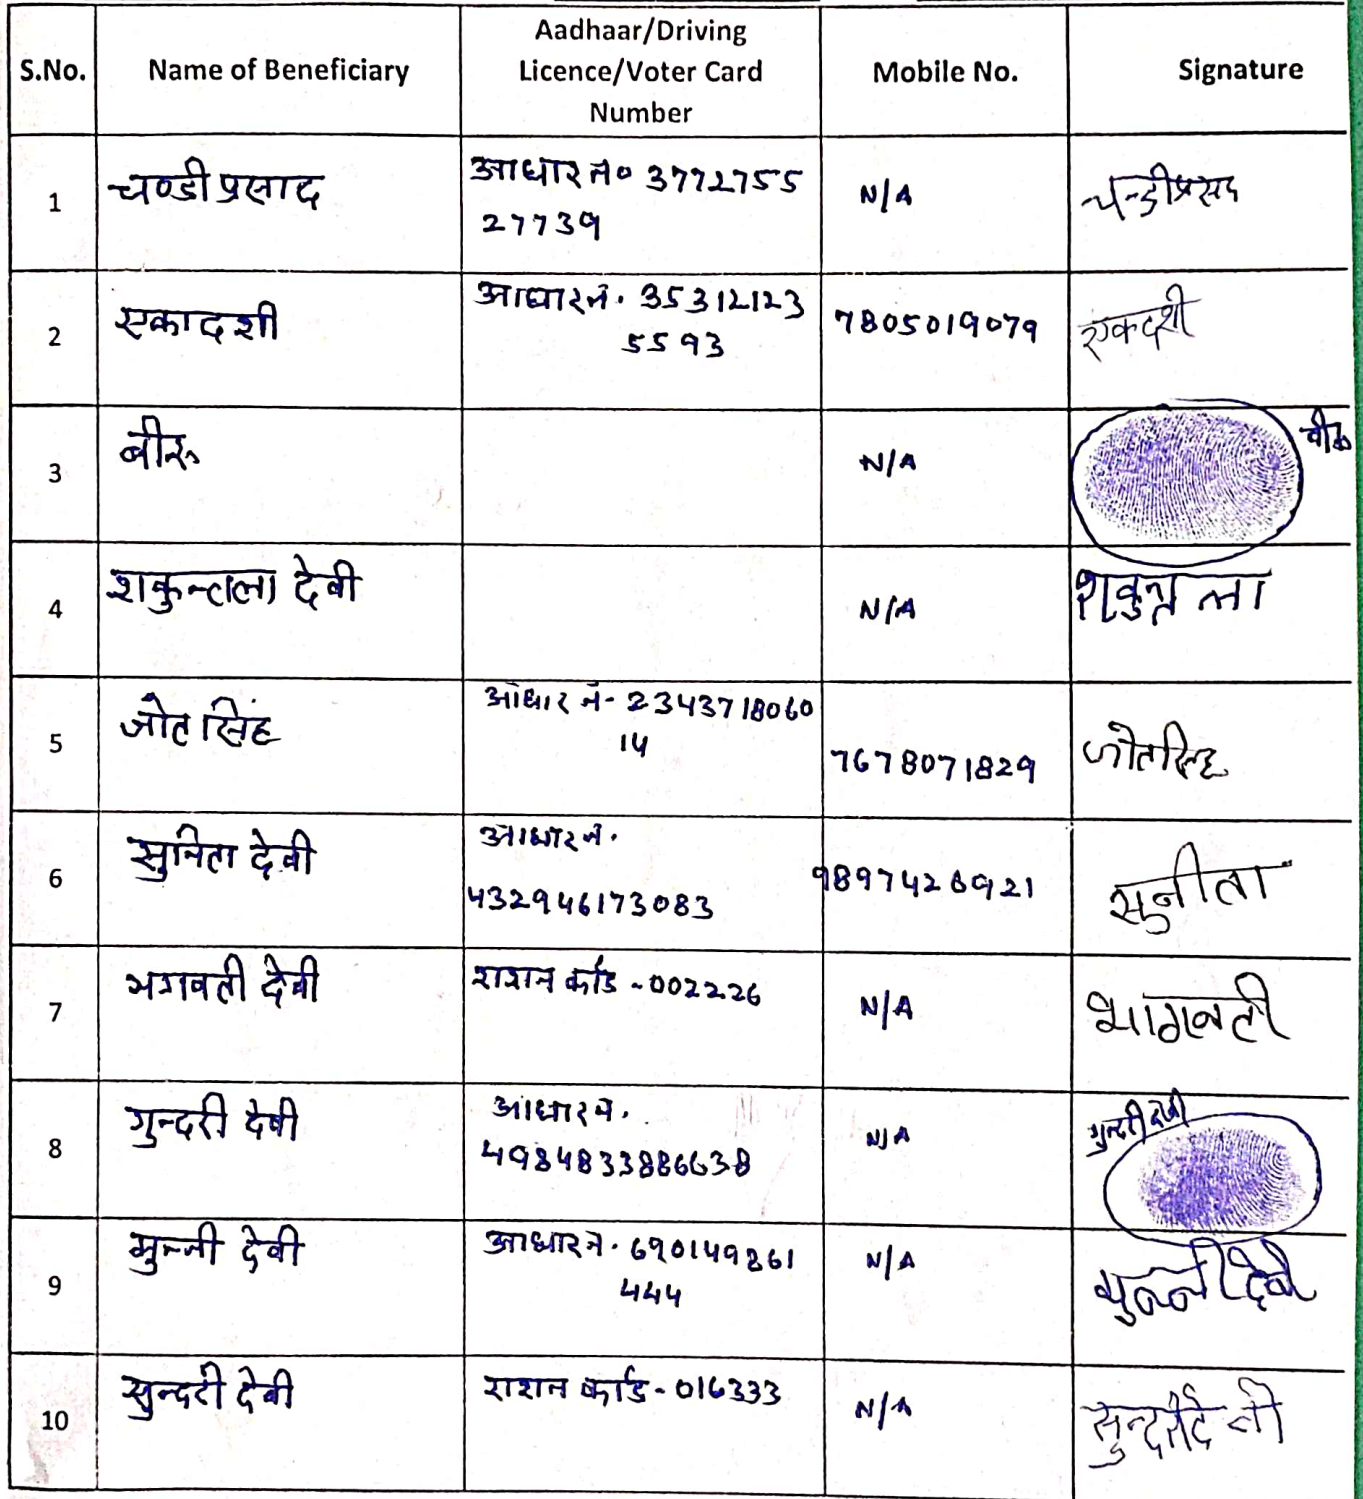 S.No.
Name of Beneficiary
Aadhaar/Driving
Licence/Voter Card
Number
Mobile No.
Signature
1
चण्डी प्रसाद
आधार न० 3772755
27739
N/A
चन्डीप्रसद
2
एकादशी
आधार नं. 35312123
5593
7805019079
एकदशी
3
बीरू
N/A
बीरू
4
शकुन्तला देवी
N/A
शकुन्तला
5
जोत सिंह
आधार नं- 2343718060
14
7678071829
जोतसिह
6
सुनिता देवी
आधार नं.
432946173083
9897426921
सुनीता
7
भगवती देवी
राशन कार्ड -002226
N/A
भागवती
8
गुन्दरी देवी
आधार नं.
4984833886638
N/A
गुन्दरी देवी
9
मुन्नी देवी
आधार नं. 690149861
444
N/A
मुन्नी देवी
10
सुन्दरी देवी
राशन कार्ड - 016333
N/A
सुन्दरी देवी